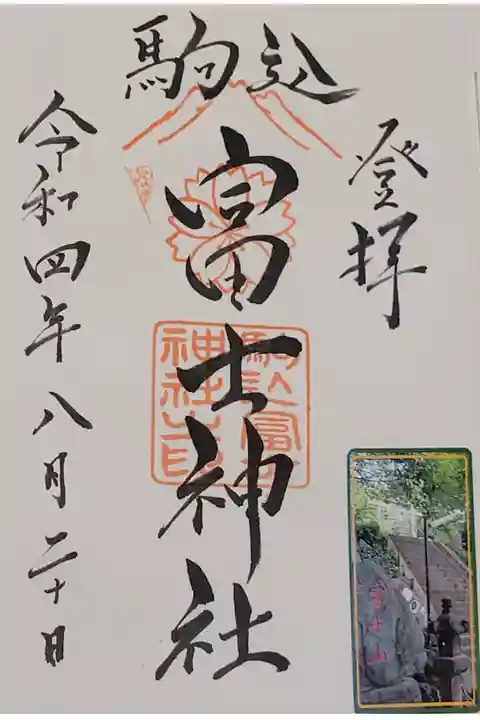 登拝
駒込
冨士神社
駒込富士
神社之印
令和四年八月二十日
富士山